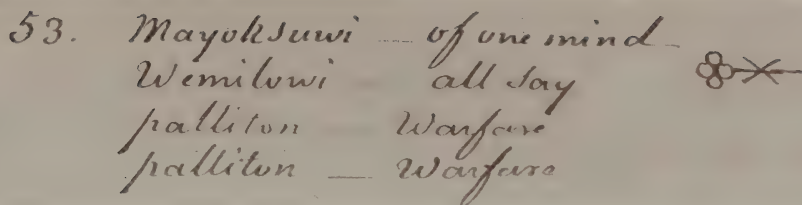 53. Mayoksuwi — of one mind -
Wemilowi all say
palliton Warfare
palliton — Warfare